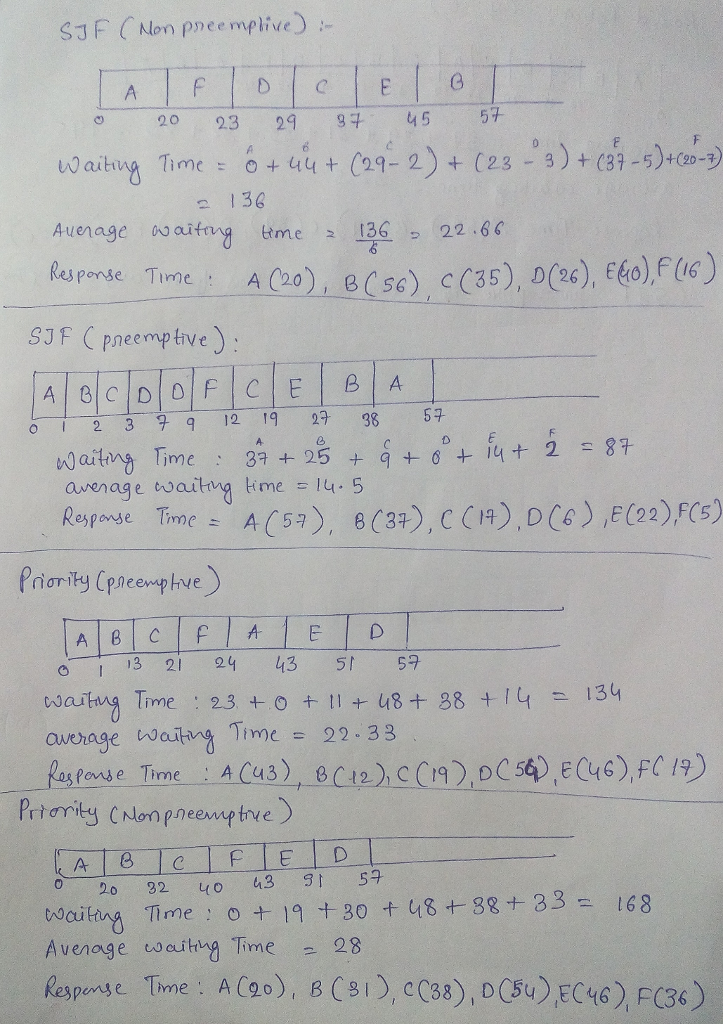 SJF (Non preemptive) :-
A F D C E B
0 20 23 29 37 45 57
A B C D E F
Waiting Time = 0 + 44 + (29-2) + (23-3) + (37-5)+(20-7)
= 136
Average waiting time = 136/6 = 22.66
Response Time : A(20), B(56), C(35), D(26), E(40), F(16)
SJF (preemptive) :
A B C D D F C E B A
0 1 2 3 7 9 12 19 27 38 57
A B C D E F
Waiting Time : 37 + 25 + 9 + 0 + 14 + 2 = 87
average waiting time = 14.5
Response Time = A(57), B(37), C(17), D(6), E(22), F(5)
Priority (preemptive)
A B C F A E D
0 1 13 21 24 43 51 57
Waiting Time : 23 + 0 + 11 + 48 + 38 + 14 = 134
average waiting Time = 22.33
Response Time : A(43), B(12), C(19), D(54), E(46), F(17)
Priority (Nonpreemptive)
A B C F E D
0 20 32 40 43 51 57
Waiting Time : 0 + 19 + 30 + 48 + 38 + 33 = 168
Average waiting Time = 28
Response Time : A(20), B(31), C(38), D(54), E(46), F(36)